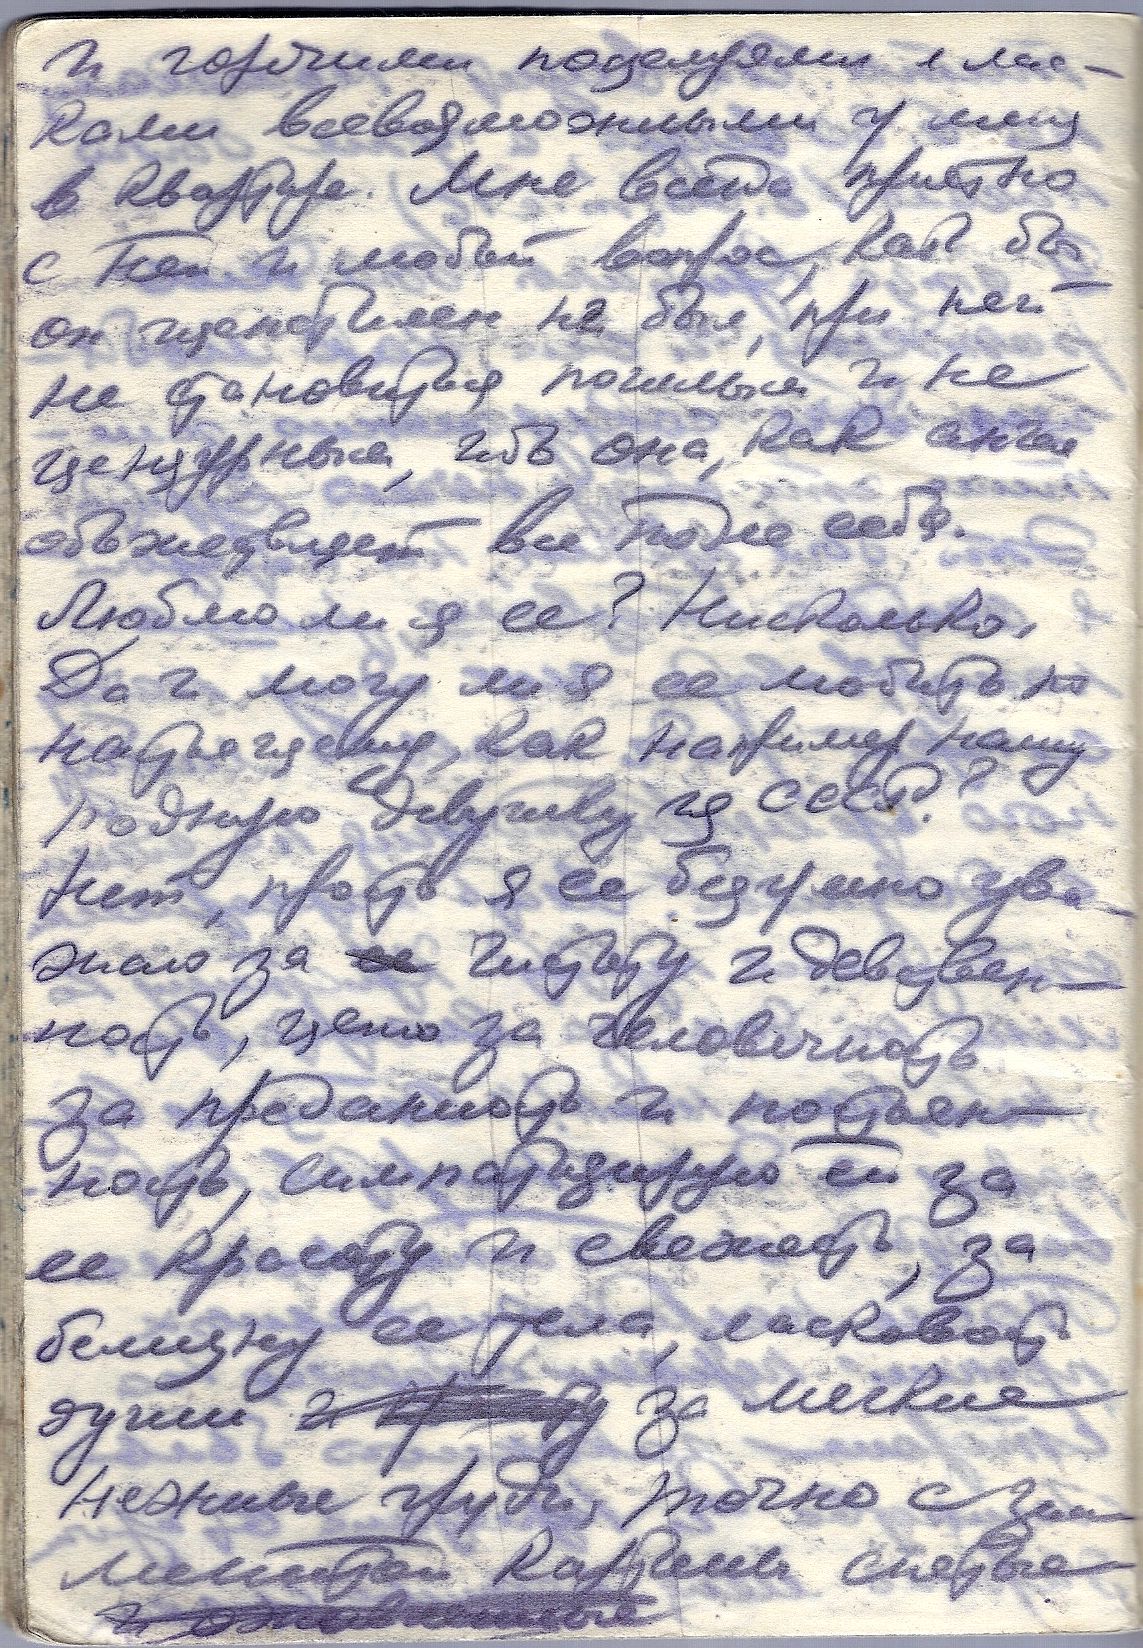 и горячими поцелуями и лас-
ками всевозможными у меня
в квартире. Мне всегда приятно
с ней и любой вопрос, как бы
он щепетилен не был, при ней
не становится пошлым и не
цензурным, ибо она, как ангел
облагораживает все подле себя.
Люблю ли я ее? Нисколько.
Да и могу ли я ее любить по
настоящему, как например нашу
родную девушку из СССР?
Нет, просто я ее безумно ува-
жаю за чистоту и девствен-
ность, ценю за человечность
за преданность и постоян-
ность, симпатизирую ей за
ее красоту и свежесть, за
белизну ее тела, ласковость
души за мягкие
нежные груди, точно с зна-
менитой картины снятые